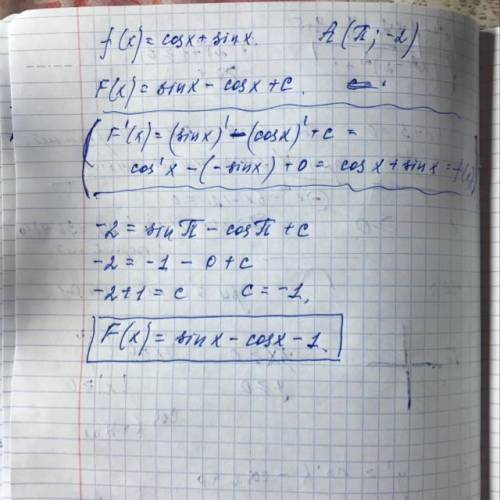 f(x) = cosx + sinx. A(π; -2)
F(x) = sinx - cosx + C.
F'(x) = (sinx)' - (cosx)' + c =
cos'x - (-sinx) + 0 = cosx + sinx = f(x)
-2 = sinπ - cosπ + c
-2 = -1 - 0 + c
-2+1 = c c = -1,
F(x) = sinx - cosx - 1.